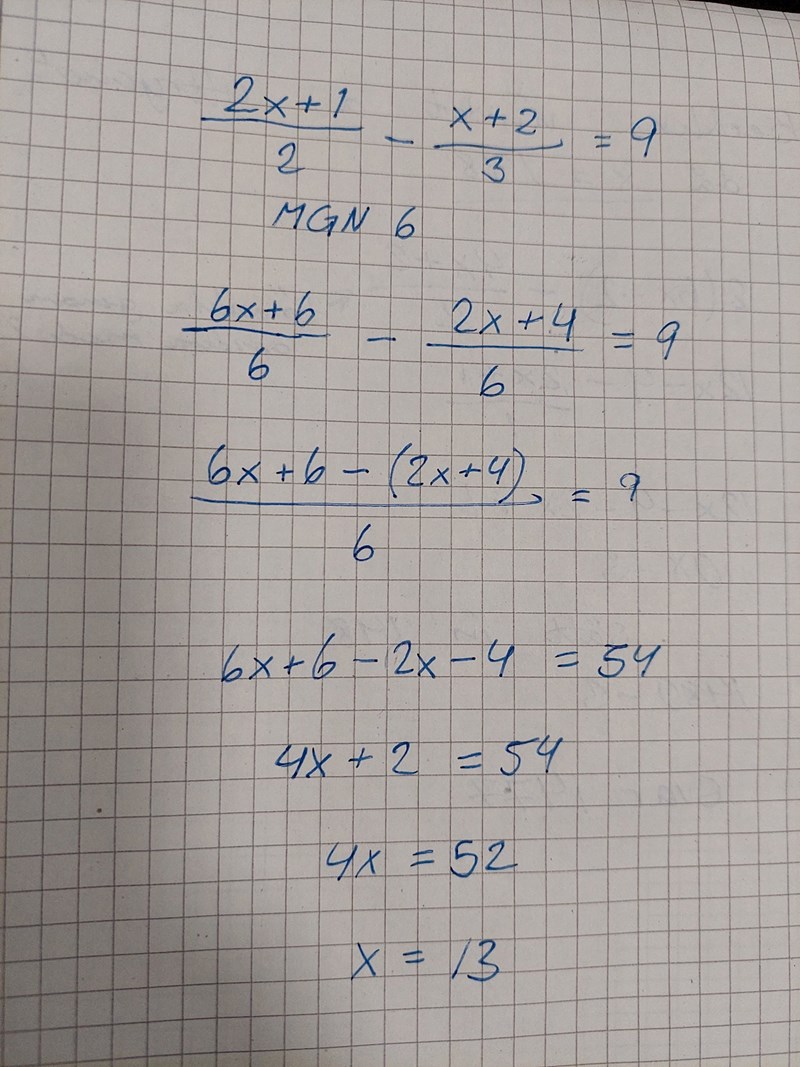 (2x+1)/2 - (x+2)/3 = 9
MGN 6
(6x+6)/6 - (2x+4)/6 = 9
(6x+6-(2x+4))/6 = 9
6x+6-2x-4 = 54
4x+2 = 54
4x = 52
x = 13